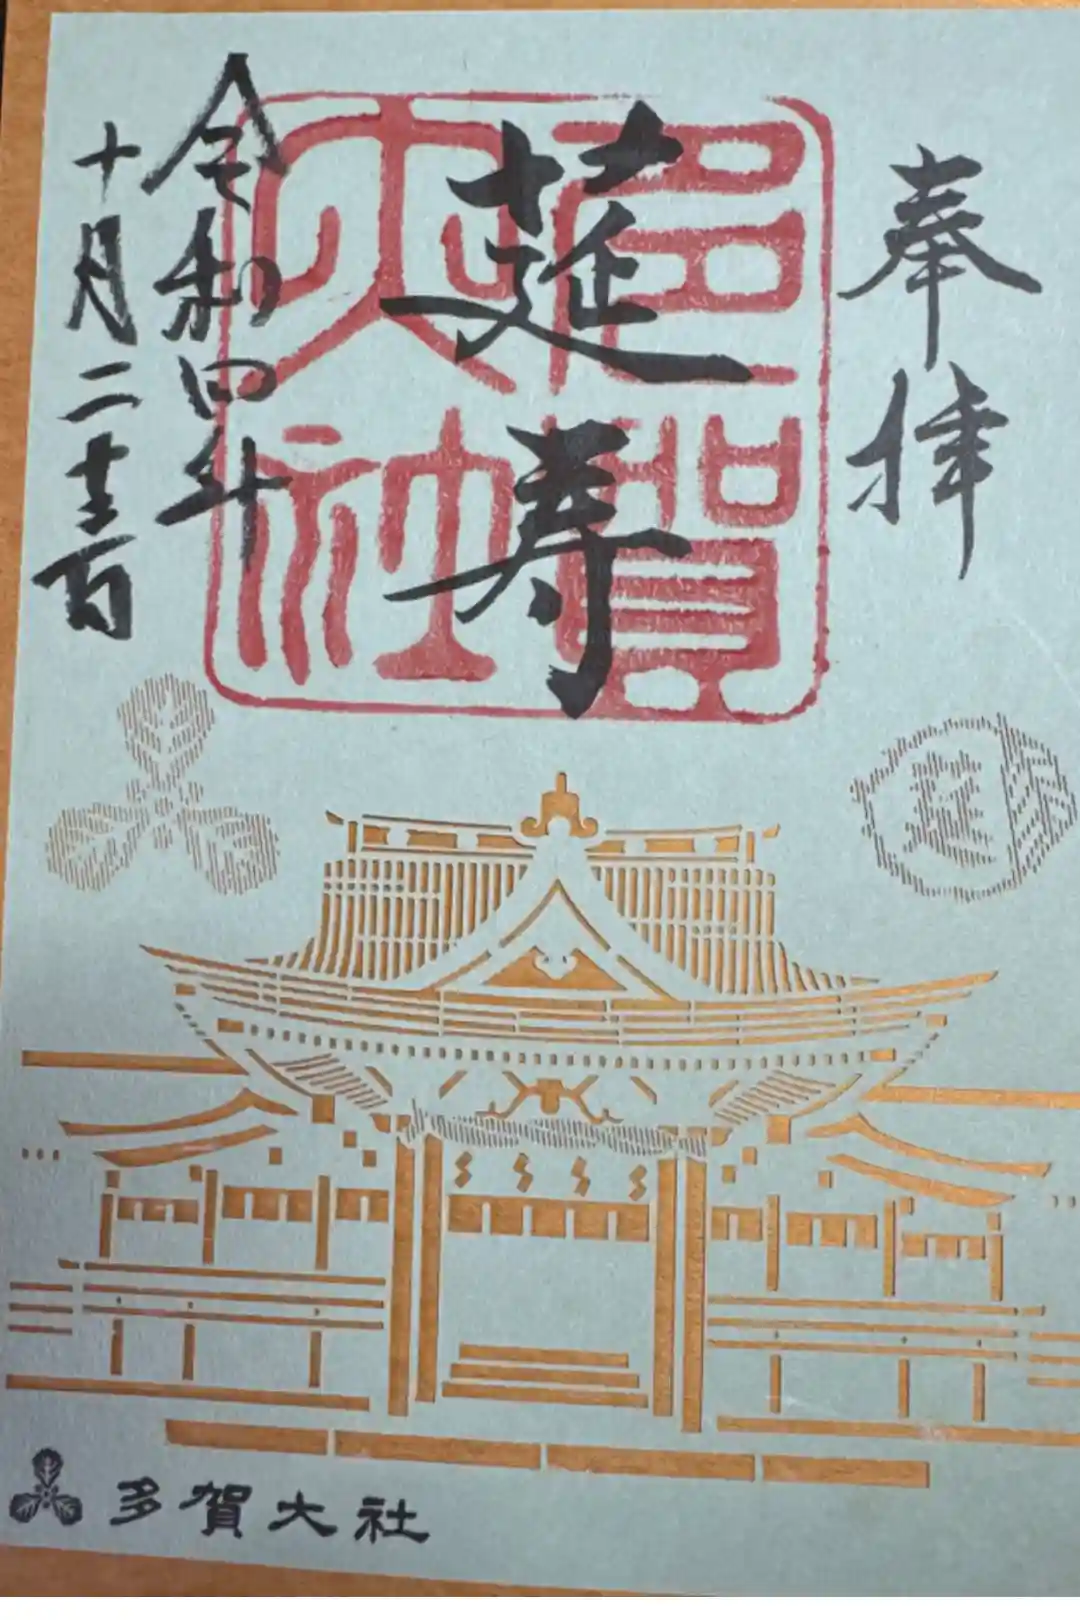 奉拝
延寿
多賀大社
令和四年
十月二十三日
莚
多賀大社